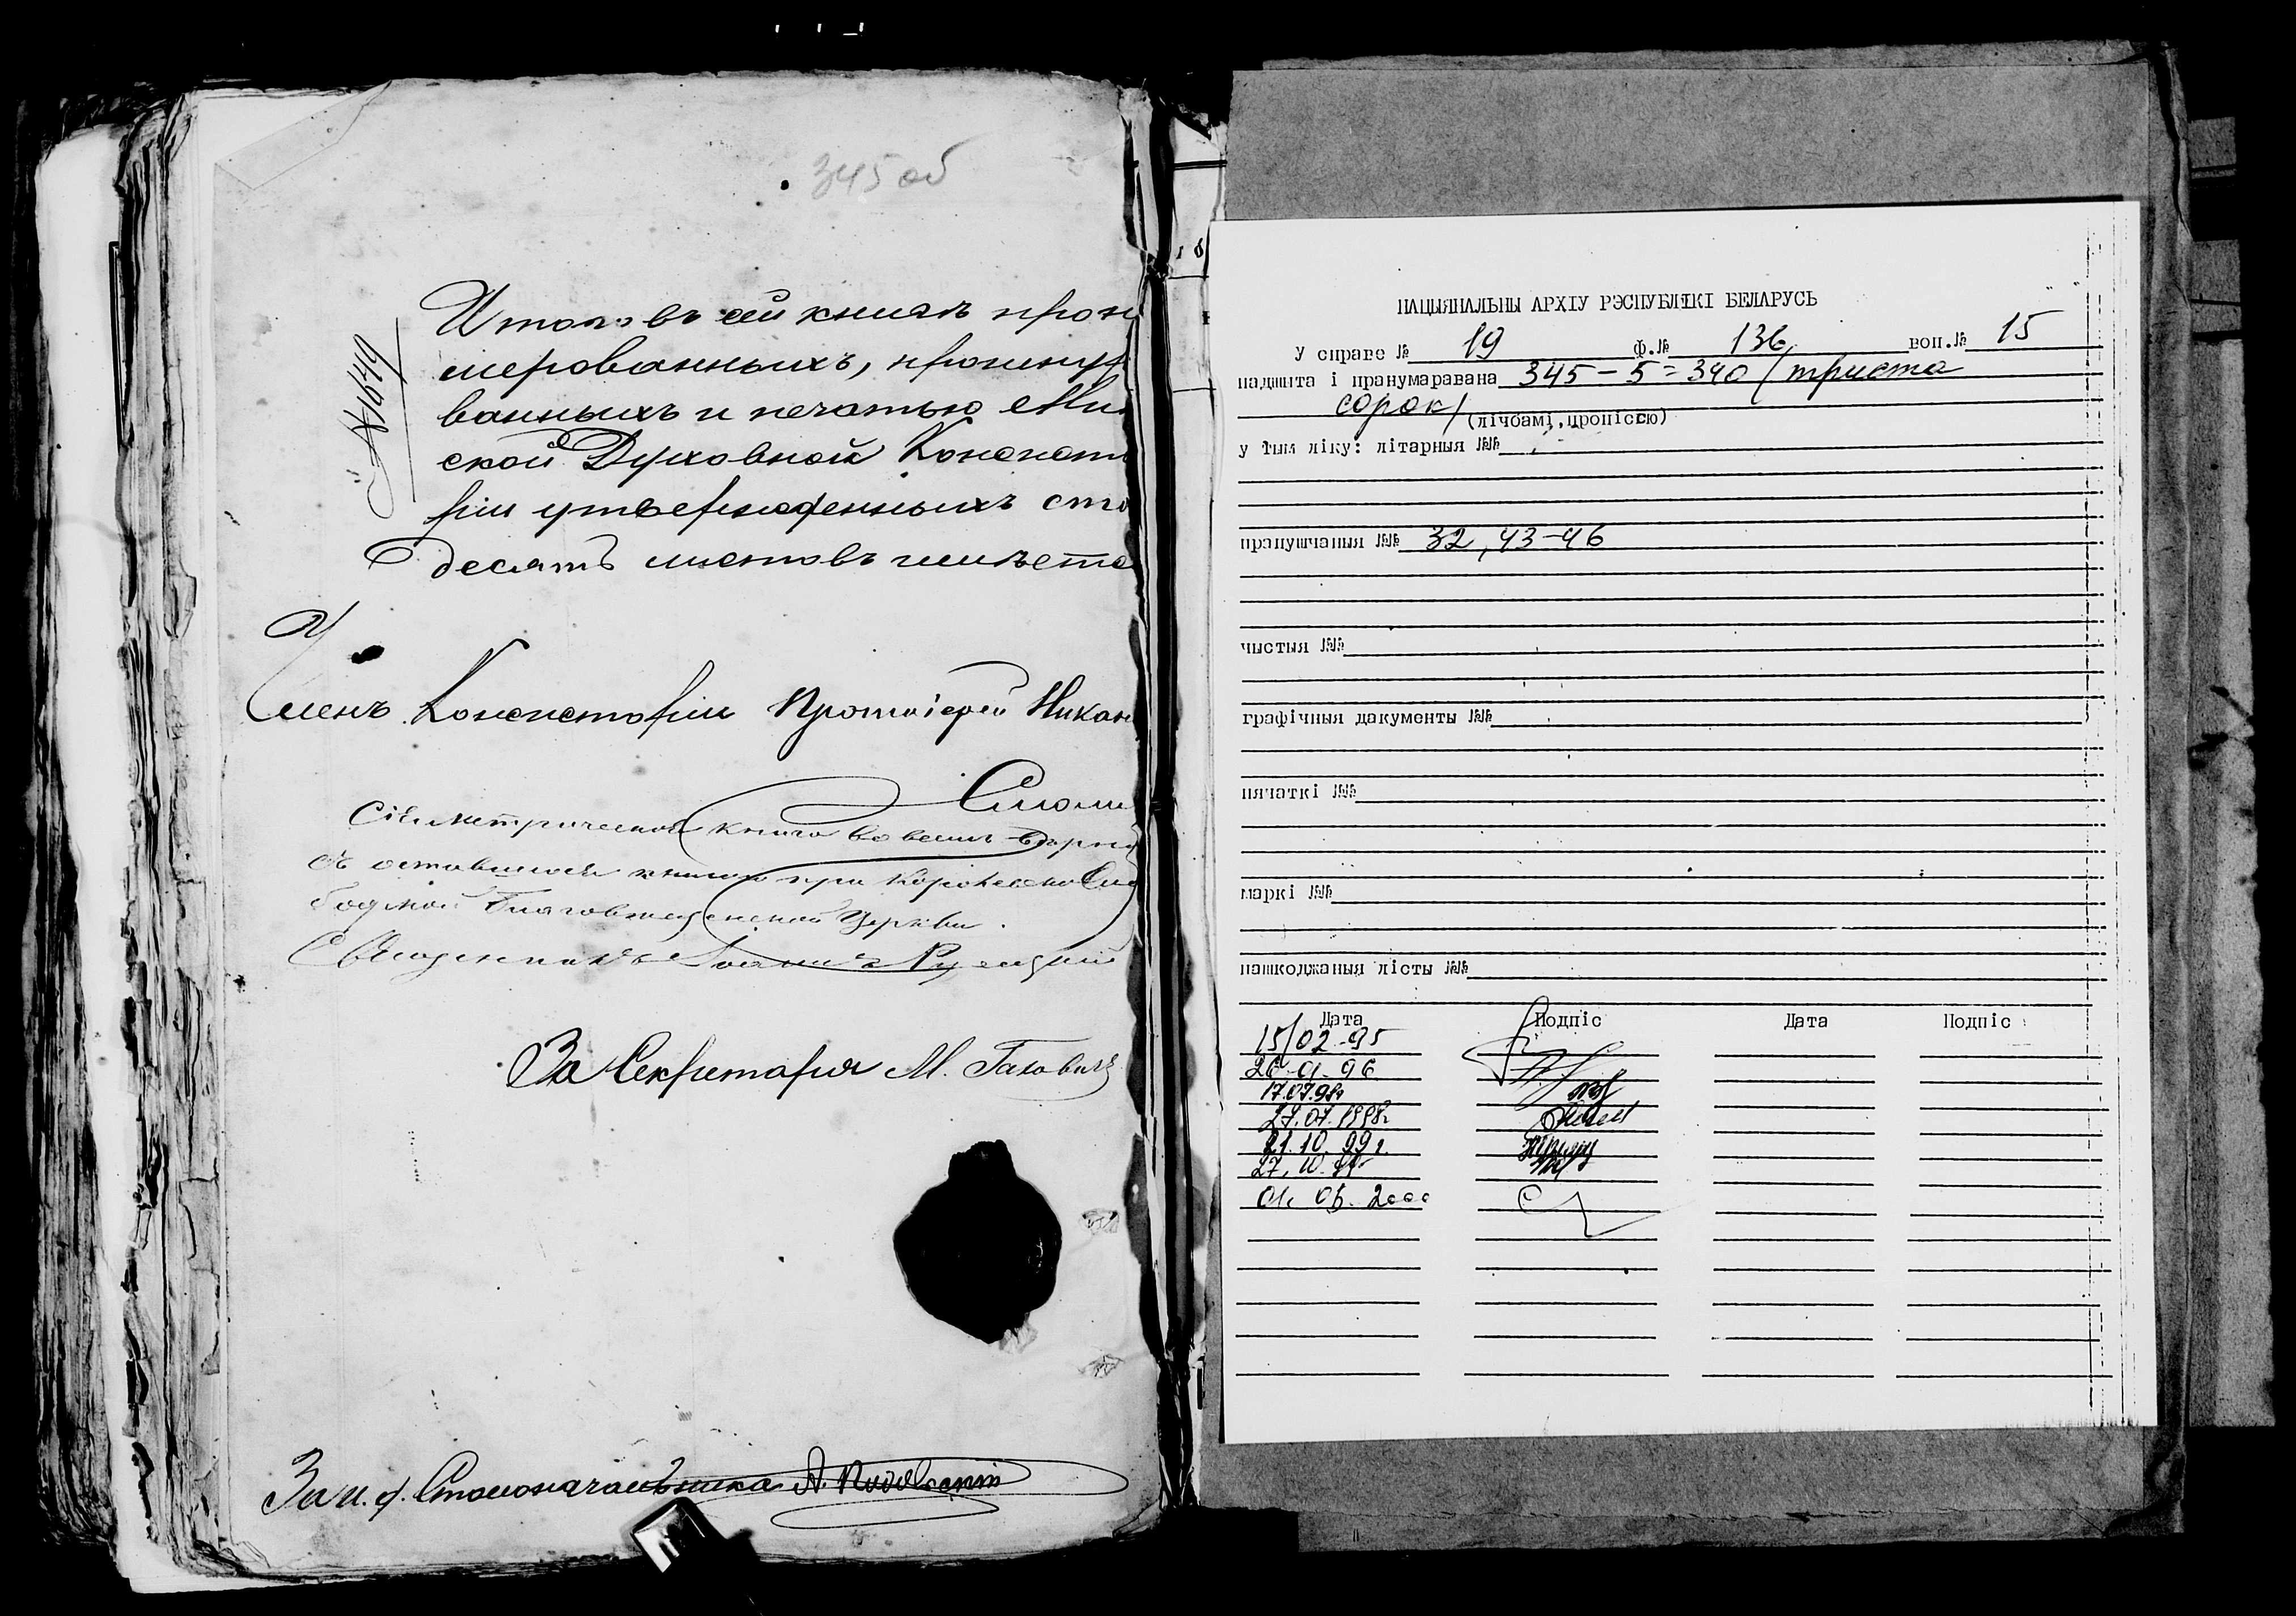 345 об
№ 1649
Итого въ сей книгѣ прон
мерованныхъ, прошнур
ванныхъ и печатью Мин
ской Духовной Консисто
ріи утвержденныхъ сто
десять листовъ имѣетс
Членъ Консисторіи Протоіерей Никан
Смоли
Сія метрическая книга во всемъ вѣрна
съ оставшеюся книгою при
бодской Благовѣщенской Церкви.
Священникъ Іоаннъ
За Секретаря М.
За и. д. Столоначальника А.
НАЦЫЯНАЛЬНЫ АРХІУ РЭСПУБЛІКІ БЕЛАРУСЬ
У справе № 19 ф.№ 136 воп.№ 15
падшыта і пранумаравана 345-5=340 (триста
сорок)
(лічбамі,пропіссю)
у тым ліку: літарныя №№
прапушчаныя №№ 32, 43-46
чыстыя №№
графічныя дакументы №№
пячаткі №№
маркі №№
пашкоджаныя лісты №№
Дата Подпіс Дата Подпіс
15/02-95
26-01-96
17.07.98г
27.07.1998г
21.10.99г.
27.10.99
2000